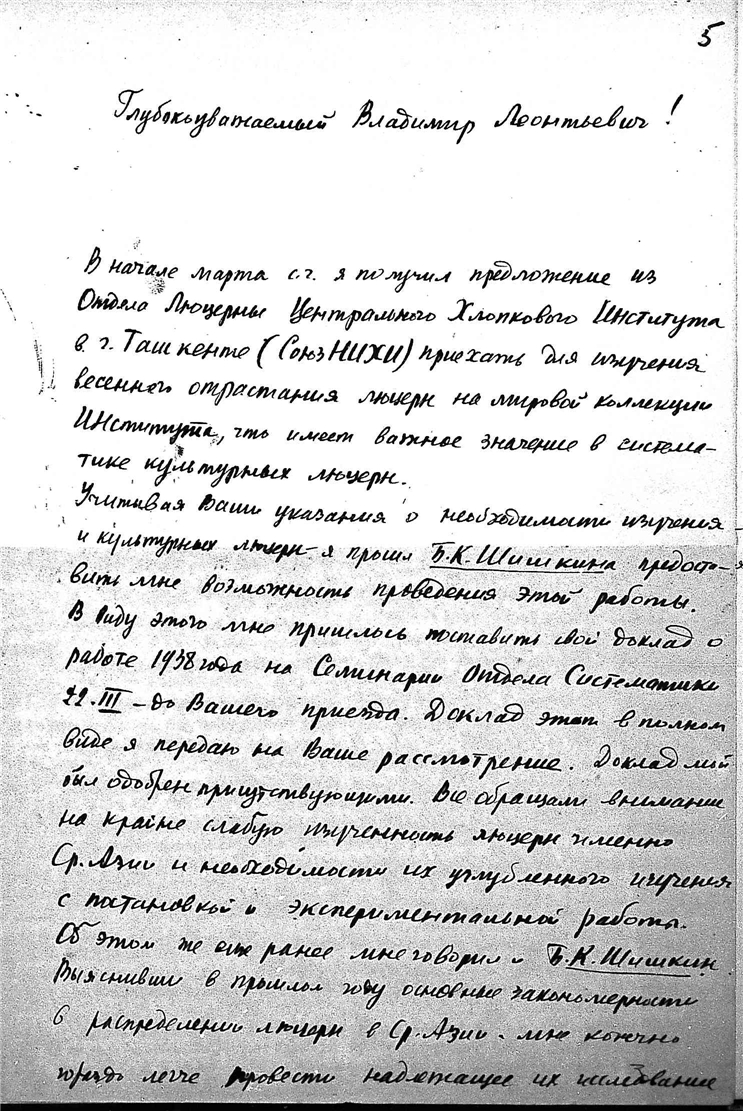 5
Глубокоуважаемый Владимир Леонтьевич!
В начале марта с.г. я получил предложение из
Отдела Люцерны Центрального Хлопкового Института
в г. Ташкенте (СоюзНИХИ) приехать для изучения
весеннего отрастания люцерн на мировой коллекции
Института, что имеет важное значение в система-
тике культурных люцерн.
Учитывая Ваши указания о необходимости изучения
и культурных люцерн я просил Б.К. Шишкина предоста-
вить мне возможность проведения этой работы.
В виду этого мне пришлось поставить свой доклад о
работе 1938 года на Семинарии Отдела Систематики
22.III – до Вашего приезда. Доклад этот в полном
виде я передаю на Ваше рассмотрение. Доклад мой
был одобрен присутствующими. Все обращали внимание
на крайне слабую изученность люцерн именно
Ср. Азии и необходимости их углубленного изучения
с постановкой и экспериментальной работы.
Об этом же еще ранее мне говорил и Б.К. Шишкин.
Выяснивши в прошлом году основные закономерности
в распределении люцерн в Ср. Азии - мне конечно
гораздо легче провести надлежащее их исследование